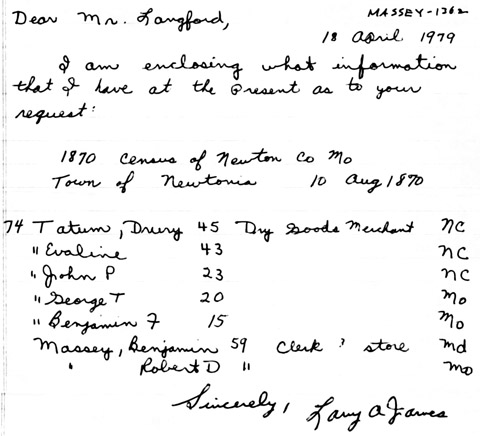 Dear Mr. Langford,
MASSEY-1362
18 April 1979
I am enclosing what information
that I have at the present as to your
request:
1870 Census of Newton Co Mo
Town of Newtonia 10 Aug 1870
74 Tatum, Drury 45 Dry Goods Merchant NC
" Evaline 43 NC
" John P 23 NC
" George T 20 Mo
" Benjamin F 15 Mo
Massey, Benjamin 59 Clerk ? store Md
" Robert D " Mo
Sincerely, Larry A James